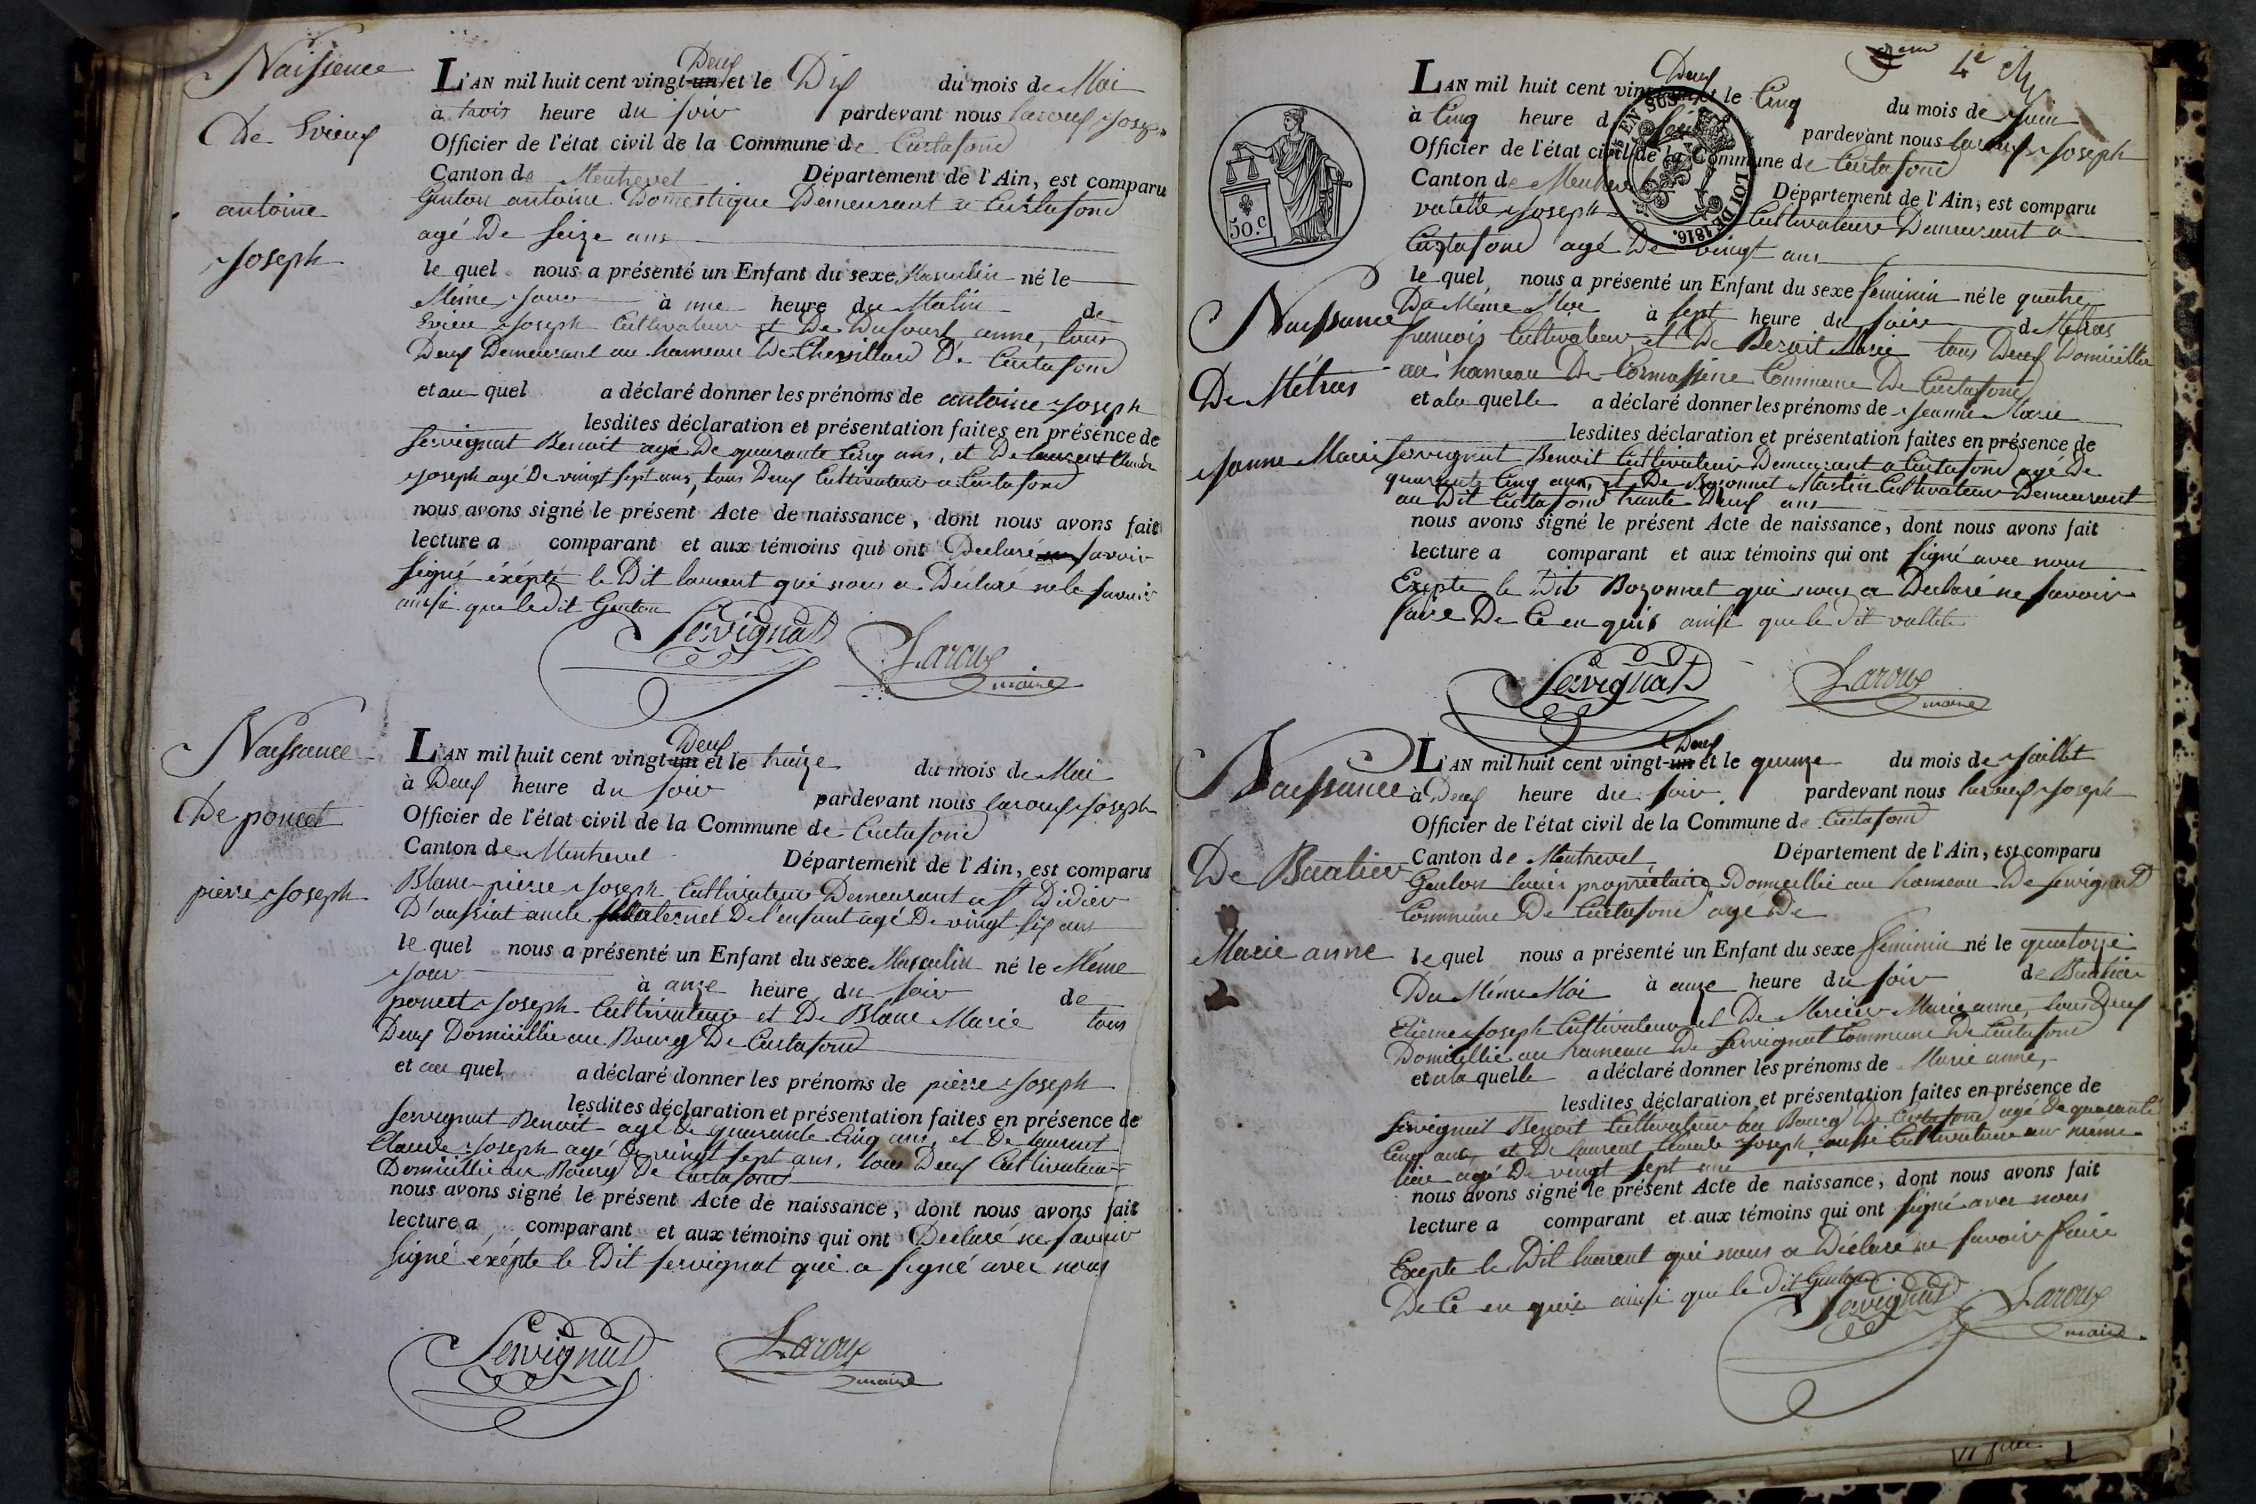 Naissence
De Evieux
antoine
Joseph
Deux
L'AN mil huit cent vingt-un et le Dix du mois de Mai
à trois heure du soir pardevant nous laroux Joseph
Officier de l'état civil de la Commune de Curtafond
Canton de Montrevel Département de l'Ain, est comparu
Genton antoine Domestique Demeurant a Curtafond
agé De seize ans
le quel nous a présenté un Enfant du sexe Masculin né le
Même Jour à une heure du Matin de
Evieu Joseph Cultivateur et De Dufour anne, tous
Deux Demeurant au hameau De Chevillard De Curtafond
et au quel a déclaré donner les prénoms de antoine Joseph
lesdites déclaration et présentation faites en présence de
Servignat Benoit agé De quarante Cinq ans, et De laurent Claude
Joseph agé De vingt sept ans, tous Deux Cultivateur a Curtafond
nous avons signé le présent Acte de naissance, dont nous avons fait
lecture a comparant et aux témoins qui ont Declaré savoir
signé éxépté le Dit laurent qui nous a Déclaré ne le savoir
ainsi que le dit Genton
Servignat Laroux
maire
Naissance
De poncet
pierre Joseph
Deux
L'AN mil huit cent vingt-un et le treize du mois de Mai
à Deux heure du soir pardevant nous laroux Joseph
Officier de l'état civil de la Commune de Curtafond
Canton de Montrevel Département de l'Ain, est comparu
Blanc pierre Joseph Cultivateur Demeurant a St Didier
D'aussiat oncle maternel De l'enfant agé De vingt six ans
le quel nous a présenté un Enfant du sexe Masculin né le Même
Jour à onze heure du soir de
poncet Joseph Cultivateur et De Blanc Marie tous
Deux Domicillié au Bourg De Curtafond
et au quel a déclaré donner les prénoms de pierre Joseph
lesdites déclaration et présentation faites en présence de
Servignat Benoit agé de quarante Cinq ans, et De laurent
Claude Joseph agé De vingt sept ans, tous Deux Cultivateur
Domicillié au Bourg De Curtafond
nous avons signé le présent Acte de naissance, dont nous avons fait
lecture a comparant et aux témoins qui ont Declaré ne savoir
signé éxépté le Dit servignat qui a signé avec nous
Servignat Laroux
maire
4e
50.C
EN SUS
LOI DE 1816.
Naissance
De Métras
Janne Marie
Deux
L'AN mil huit cent vingt et le Cinq du mois de Juin
à Cinq heure du soir pardevant nous laroux Joseph
Officier de l'état civil de la Commune de Curtafond
Canton de Montrevel Département de l'Ain, est comparu
vatette Joseph Cultivateur Demeurant a
Curtafond agé De vingt ans
le quel nous a présenté un Enfant du sexe féminin né le quatre
Du Même Moi à sept heure du soire de Métras
francois Cultivateur et De Beroit Marie tous Deux Domicillié
au hameau De Cormassine Commune De Curtafond
et a la quelle a déclaré donner les prénoms de Jeanne Marie
lesdites déclaration et présentation faites en présence de
Servignat Benoit Cultivateur Demeurant a Curtafond agé De
quarante Cinq ans, et De Bozonnet Martin Cultivateur Demeurant
au Dit Curtafond trante Deux ans
nous avons signé le présent Acte de naissance, dont nous avons fait
lecture a comparant et aux témoins qui ont signé avec nous
Exepte le Dit Bozonnet qui nous a Declaré ne savoir
faire De Ce en quis ainsi que le dit vattete
Servignat Laroux
maire
Naissance
De Buatier
Marie anne
Deux
L'AN mil huit cent vingt-un et le quinze du mois de Juillet
à Deux heure du soir pardevant nous laroux Joseph
Officier de l'état civil de la Commune de Curtafond
Canton de Montrevel Département de l'Ain, est comparu
Genton louis propriétaire Domicillié au hameau De servignat
Commune De Curtafond agé De
le quel nous a présenté un Enfant du sexe féminin né le quatorze
Du Même Moi à onze heure du soir de Buatier
Etienne Joseph Cultivateur et De Mercier Marie anne, tous Deux
Domicillié au hameau De servignat Commune De Curtafond
et a la quelle a déclaré donner les prénoms de Marie anne,
lesdites déclaration et présentation faites en présence de
Servignat Benoit Cultivateur au Bourg De Curtafond agé De quarante
Cinq ans, et De laurent Claude Joseph, aussi Cultivateur au même
lieu agé De vingt sept ans
nous avons signé le présent Acte de naissance, dont nous avons fait
lecture a comparant et aux témoins qui ont signé avec nous
Exepte le Dit laurent qui nous a Déclaré ne savoir faire
De Ce en quis ainsi que le dit Genton
Servignat Laroux
maire